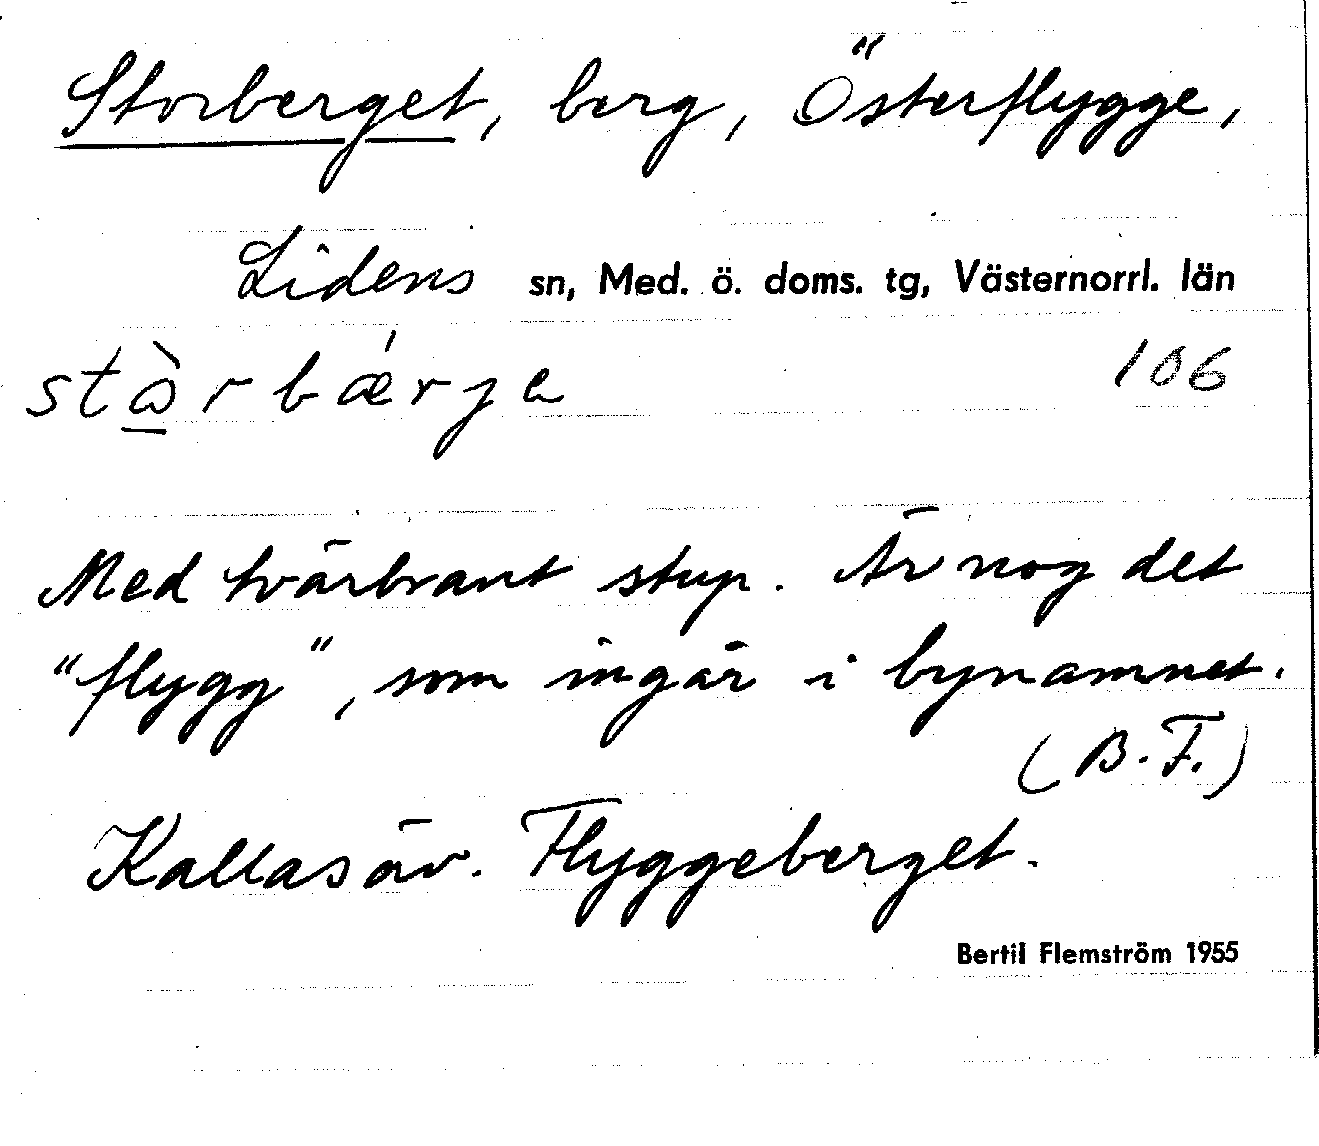 Storberget, berg, Österflygge,
Lidens sn, Med. ö. doms. tg, Västernorrl. län
106
Med tvärbrant stup. Är nog det
"flygg", som ingår i bynamnet.
(B.F.)
Kallas äv. Flyggeberget.
Bertil Flemström 1955